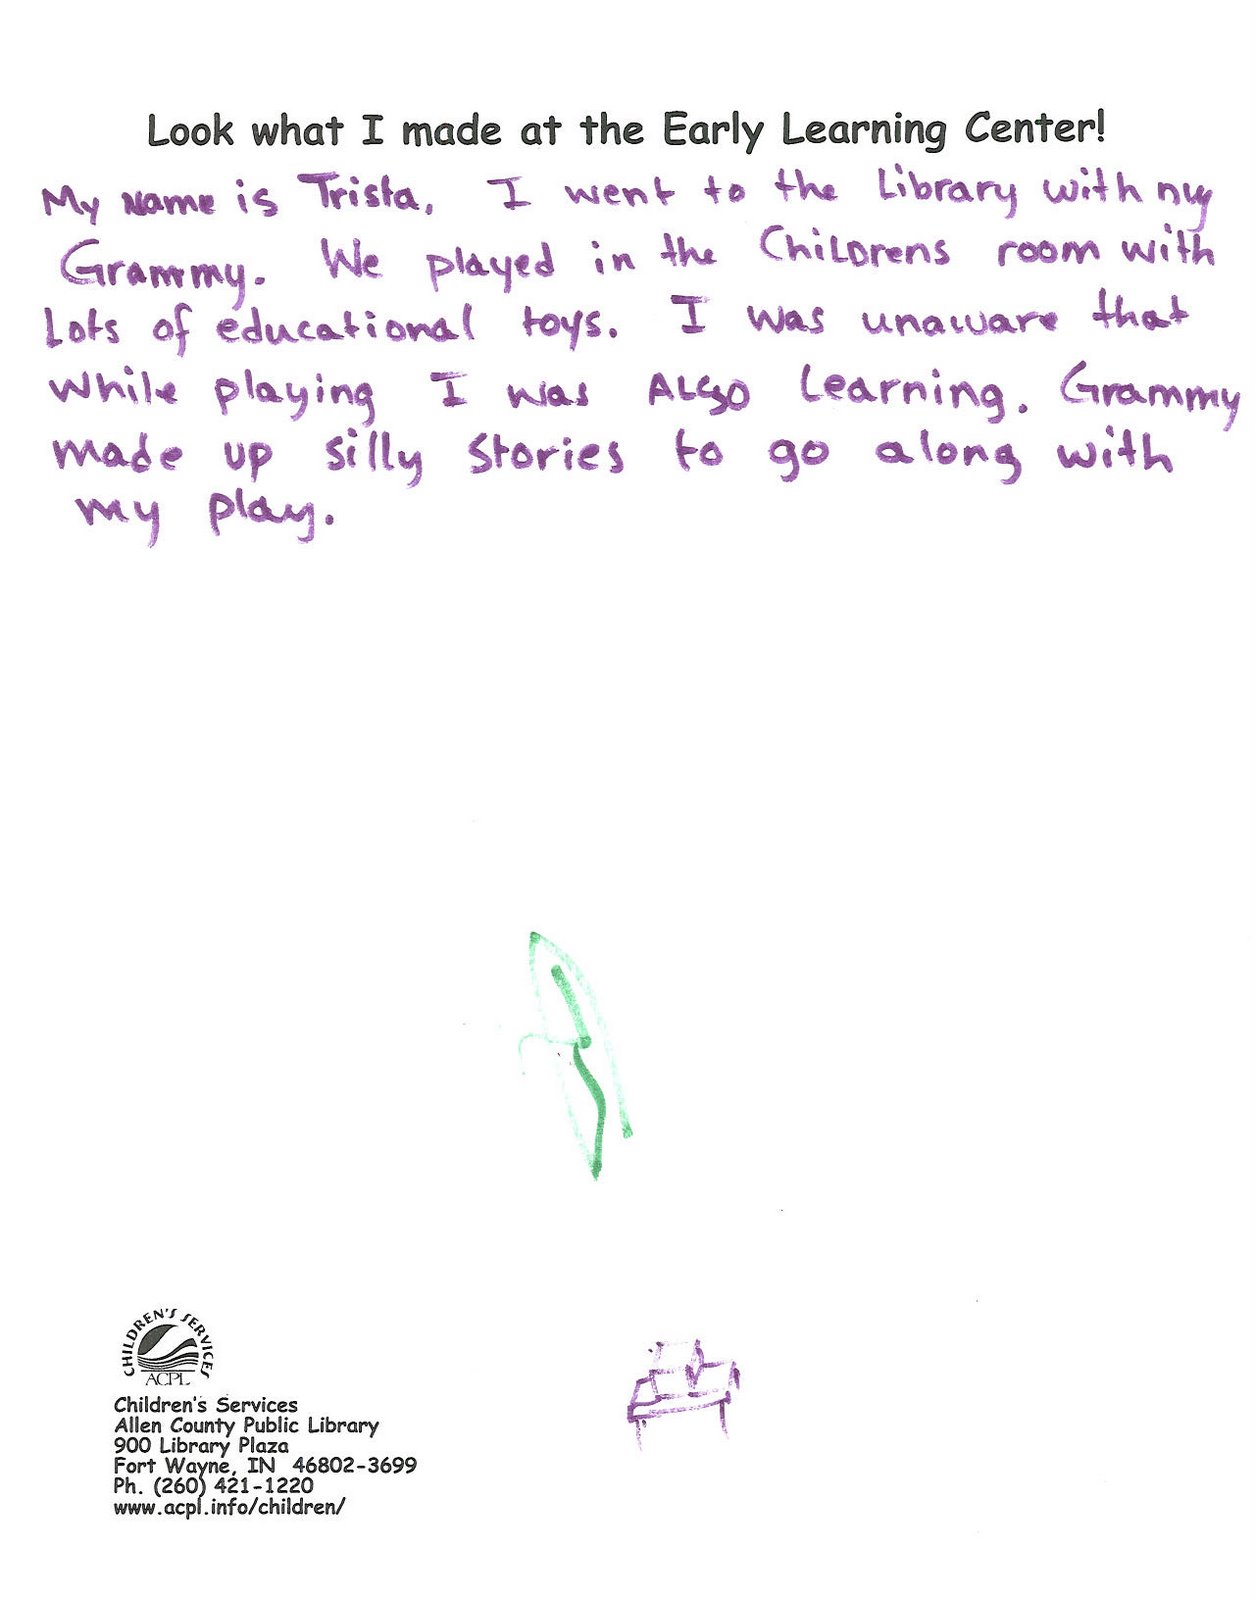 Look what I made at the Early Learning Center!
My Name is Trista. I went to the Library with my
Grammy. We played in the Childrens room with
Lots of educational toys. I was unaware that
While playing I was ALSO Learning. Grammy
made up silly stories to go along with
my play.
CHILDREN'S SERVICES
ACPL
Children's Services
Allen County Public Library
900 Library Plaza
Fort Wayne, IN 46802-3699
Ph. (260) 421-1220
www.acpl.info/children/